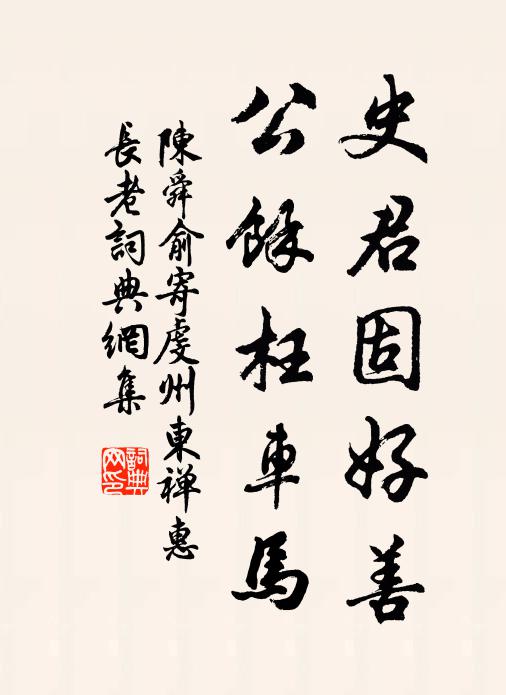 史君固好善
公餘枉車馬
陳舜俞寄虔州東禅惠
長老詞典網集
詞典
网印